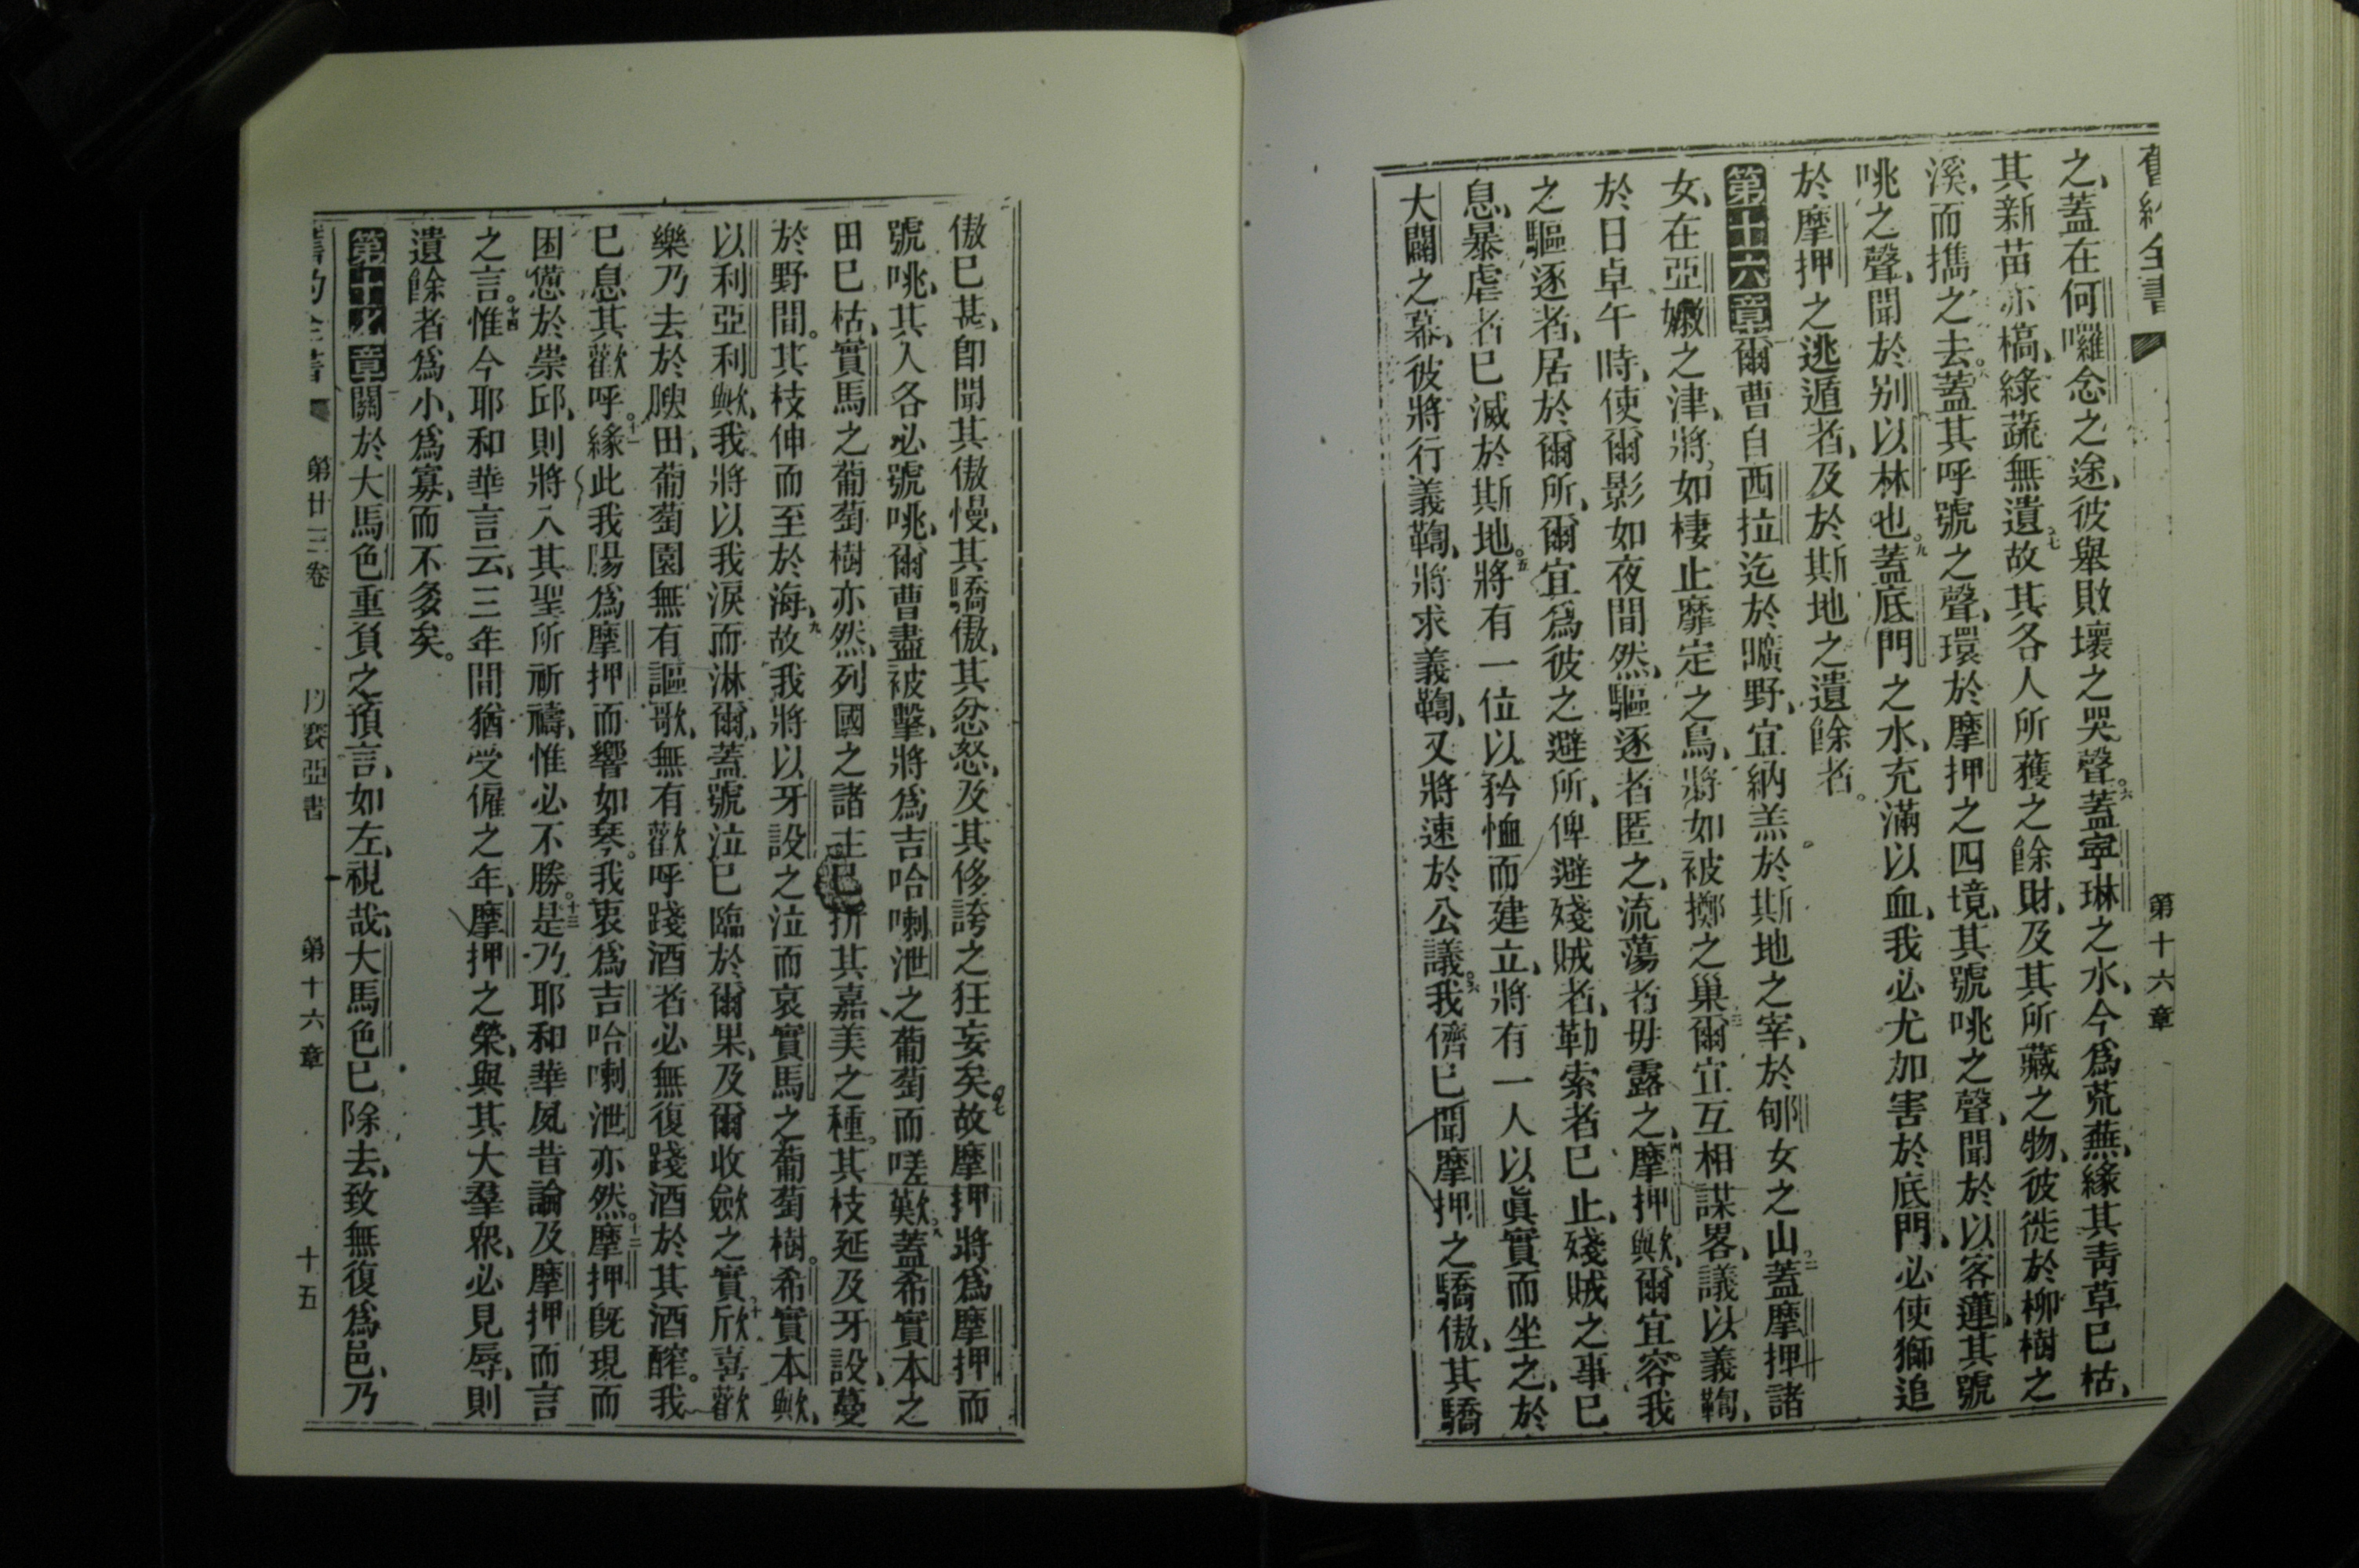 舊約全書
第十六章
之、蓋在何囉念之途、彼舉敗壞之哭聲。六蓋寧琳之水、今爲荒蕪、緣其靑草已枯、
其新苗亦槁、綠蔬無遺。七故其各人所獲之餘財、及其所藏之物、彼徙於柳樹之
溪、而攜之去。八蓋其呼號之聲、環於摩押之四境、其號咷之聲、聞於以客蓮、其號
咷之聲、聞於别以林也。九蓋底門之水、充滿以血、我必尤加害於底門、必使獅追
於摩押之逃遁者、及於斯地之遺餘者。
第十六章爾曹自西拉迄於曠野、宜納羔於斯地之宰、於郇女之山。二蓋摩押諸
女、在亞嫩之津、將如棲止靡定之鳥、將如被擲之巢。三爾宜互相謀畧、議以義鞫、
於日卓午時、使爾影如夜間然、驅逐者匿之、流蕩者毋露之、四摩押歟、爾宜容我
之驅逐者、居於爾所、爾宜爲彼之避所、俾避殘賊者、勒索者已止、殘賊之事已
息、暴虐者已滅於斯地。五將有一位以矜恤而建立、將有一人以眞實而坐之、於
大闢之幕、彼將行義鞫、將求義鞫、又將速於公議。六我儕已聞摩押之驕傲、其驕
傲已甚、卽聞其傲慢、其驕傲、其忿怒、及其侈誇之狂妄矣。七故摩押將爲摩押而
號咷、其人各必號咷、爾曹盡被擊、將爲吉哈喇泄之葡萄而嗟歎。八蓋希實本之
田已枯、實馬之葡萄樹亦然、列國之諸主已折其嘉美之種。其枝延及牙設、蔓
於野間。其枝伸而至於海、九故我將以牙設之泣而哀實馬之葡萄樹。希實本歟、
以利亞利歟、我將以我淚而淋爾、蓋號泣已臨於爾果、及爾收斂之實、十欣喜歡
樂乃去於腴田、葡萄園無有謳歌、無有歡呼、踐酒者必無復踐酒於其酒醡。我
已息其歡呼。十一緣此我腸爲摩押而響如琴。我衷爲吉哈喇泄亦然。十二摩押旣現而
困憊於崇邱、則將入其聖所祈禱、惟必不勝。十三是乃耶和華夙昔論及摩押而言
之言。十四惟今耶和華言云、三年間猶受僱之年、摩押之榮、與其大羣衆、必見辱、則
遺餘者爲小、爲寡、而不多矣。
第十七章關於大馬色重負之預言、如左、視哉、大馬色已除去、致無復爲邑、乃
舊約全書
第廿三卷
賽亞書
第十六章
十五